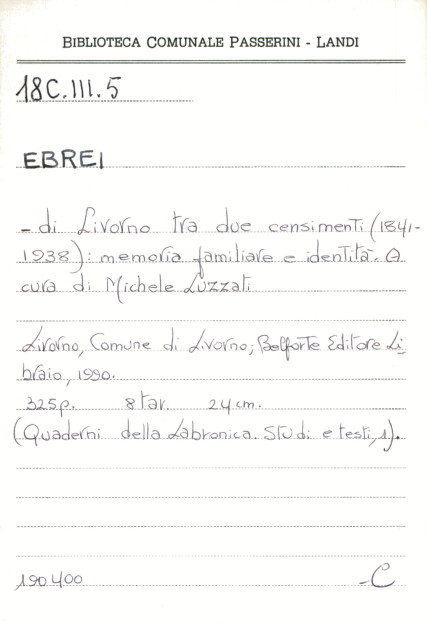 BIBLIOTECA COMUNALE PASSERINI - LANDI
18C.III.5
EBREI
- di Livorno tra due censimenti (1841-
1938): memoria familiare e identità. A
cura di Michele Luzzati
Livorno, Comune di Livorno; Belforte Editore Li
braio, 1990.
325p. 8 tav. 24 cm.
(Quaderni della Labronica. Studi e testi, 1).
190400 -C